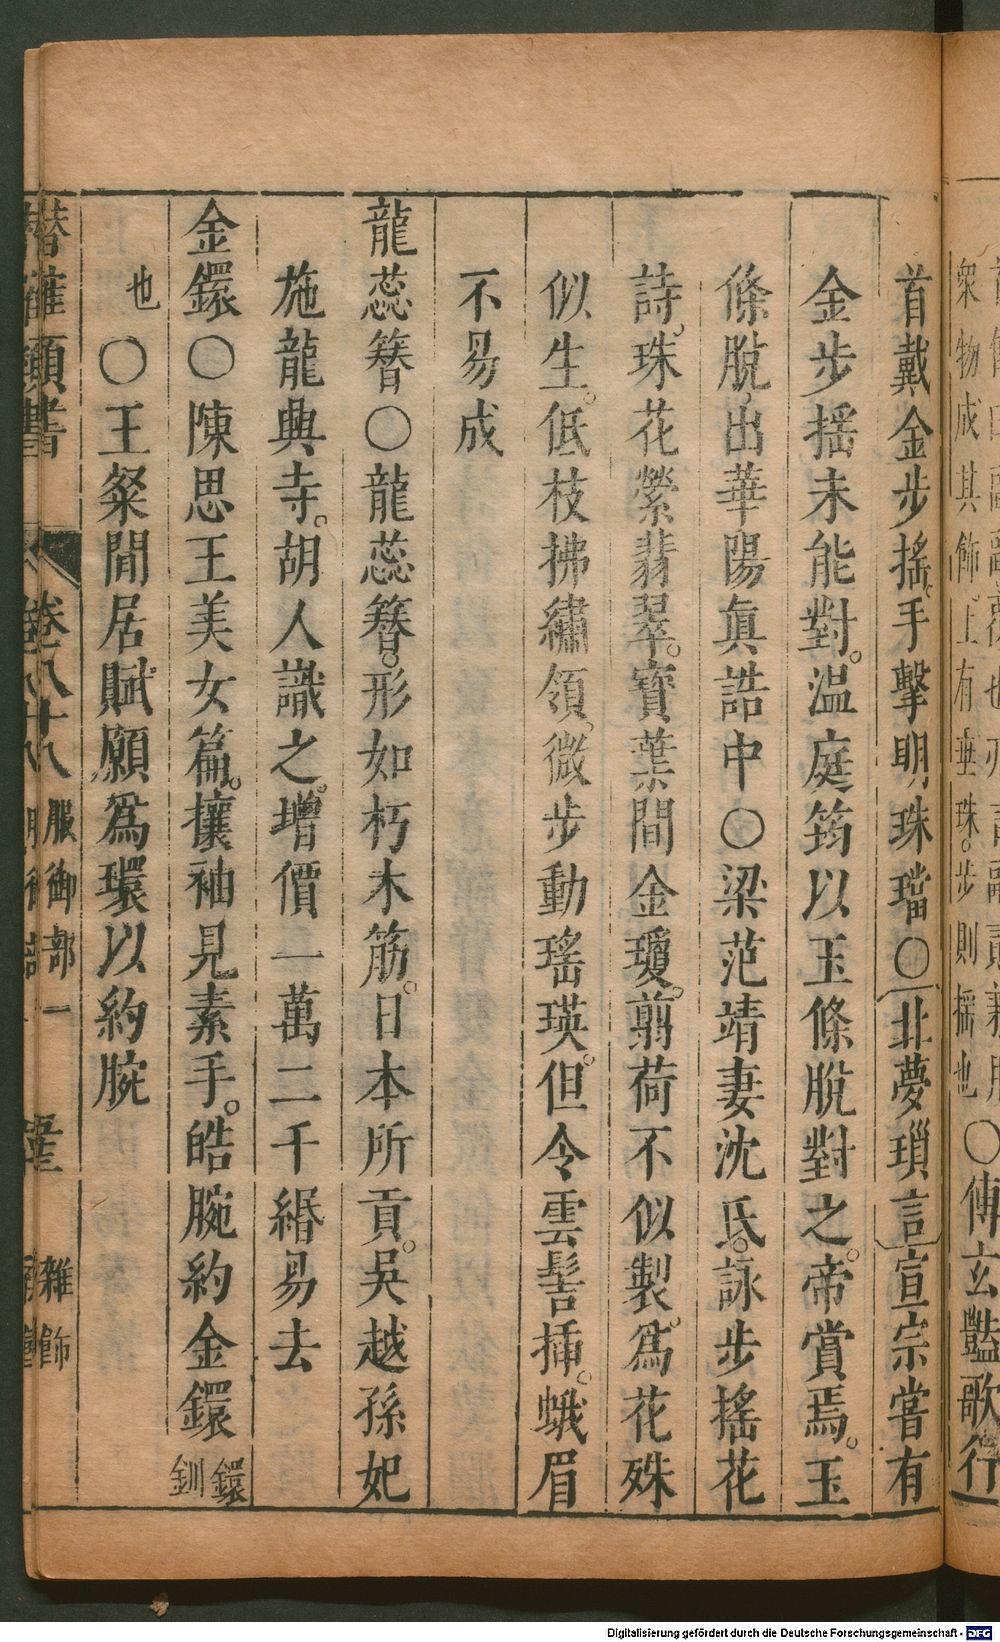 首戴金步搖。手擊明珠璫○北夢瑣言宣宗嘗有
金步搖未能對。温庭筠以玉條脫對之。帝賞焉。玉
條脫出華陽真誥中○梁范靖妻沈氏。詠步搖花
詩。珠花縈翡翠。寳葉間金瓊。剪荷不似製。為花殊
似生。低枝拂繡領。微步動瑤瑛。但令雲髻揷。蛾眉
不易成
龍蕊簪○龍蕊簪。形如朽木筋。日本所貢。吳越孫妃
施龍興寺。胡人識之。增價一萬二千緡易去
金鐶○陳思王美女篇。攘袖見素手。皓腕約金鐶 鐶釧
也 ○王粲閒居賦。願爲環以約腕
卷八十八 服御部一 雜飾
衆物成其飾上有垂珠。步則搖也 ○傅玄豔歌行
Digitalisierung gefördert durch die Deutsche Forschungsgemeinschaft - DFG